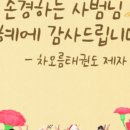 존경하는 사범님
은혜에 감사드립니다
- 차오름태권도 제자